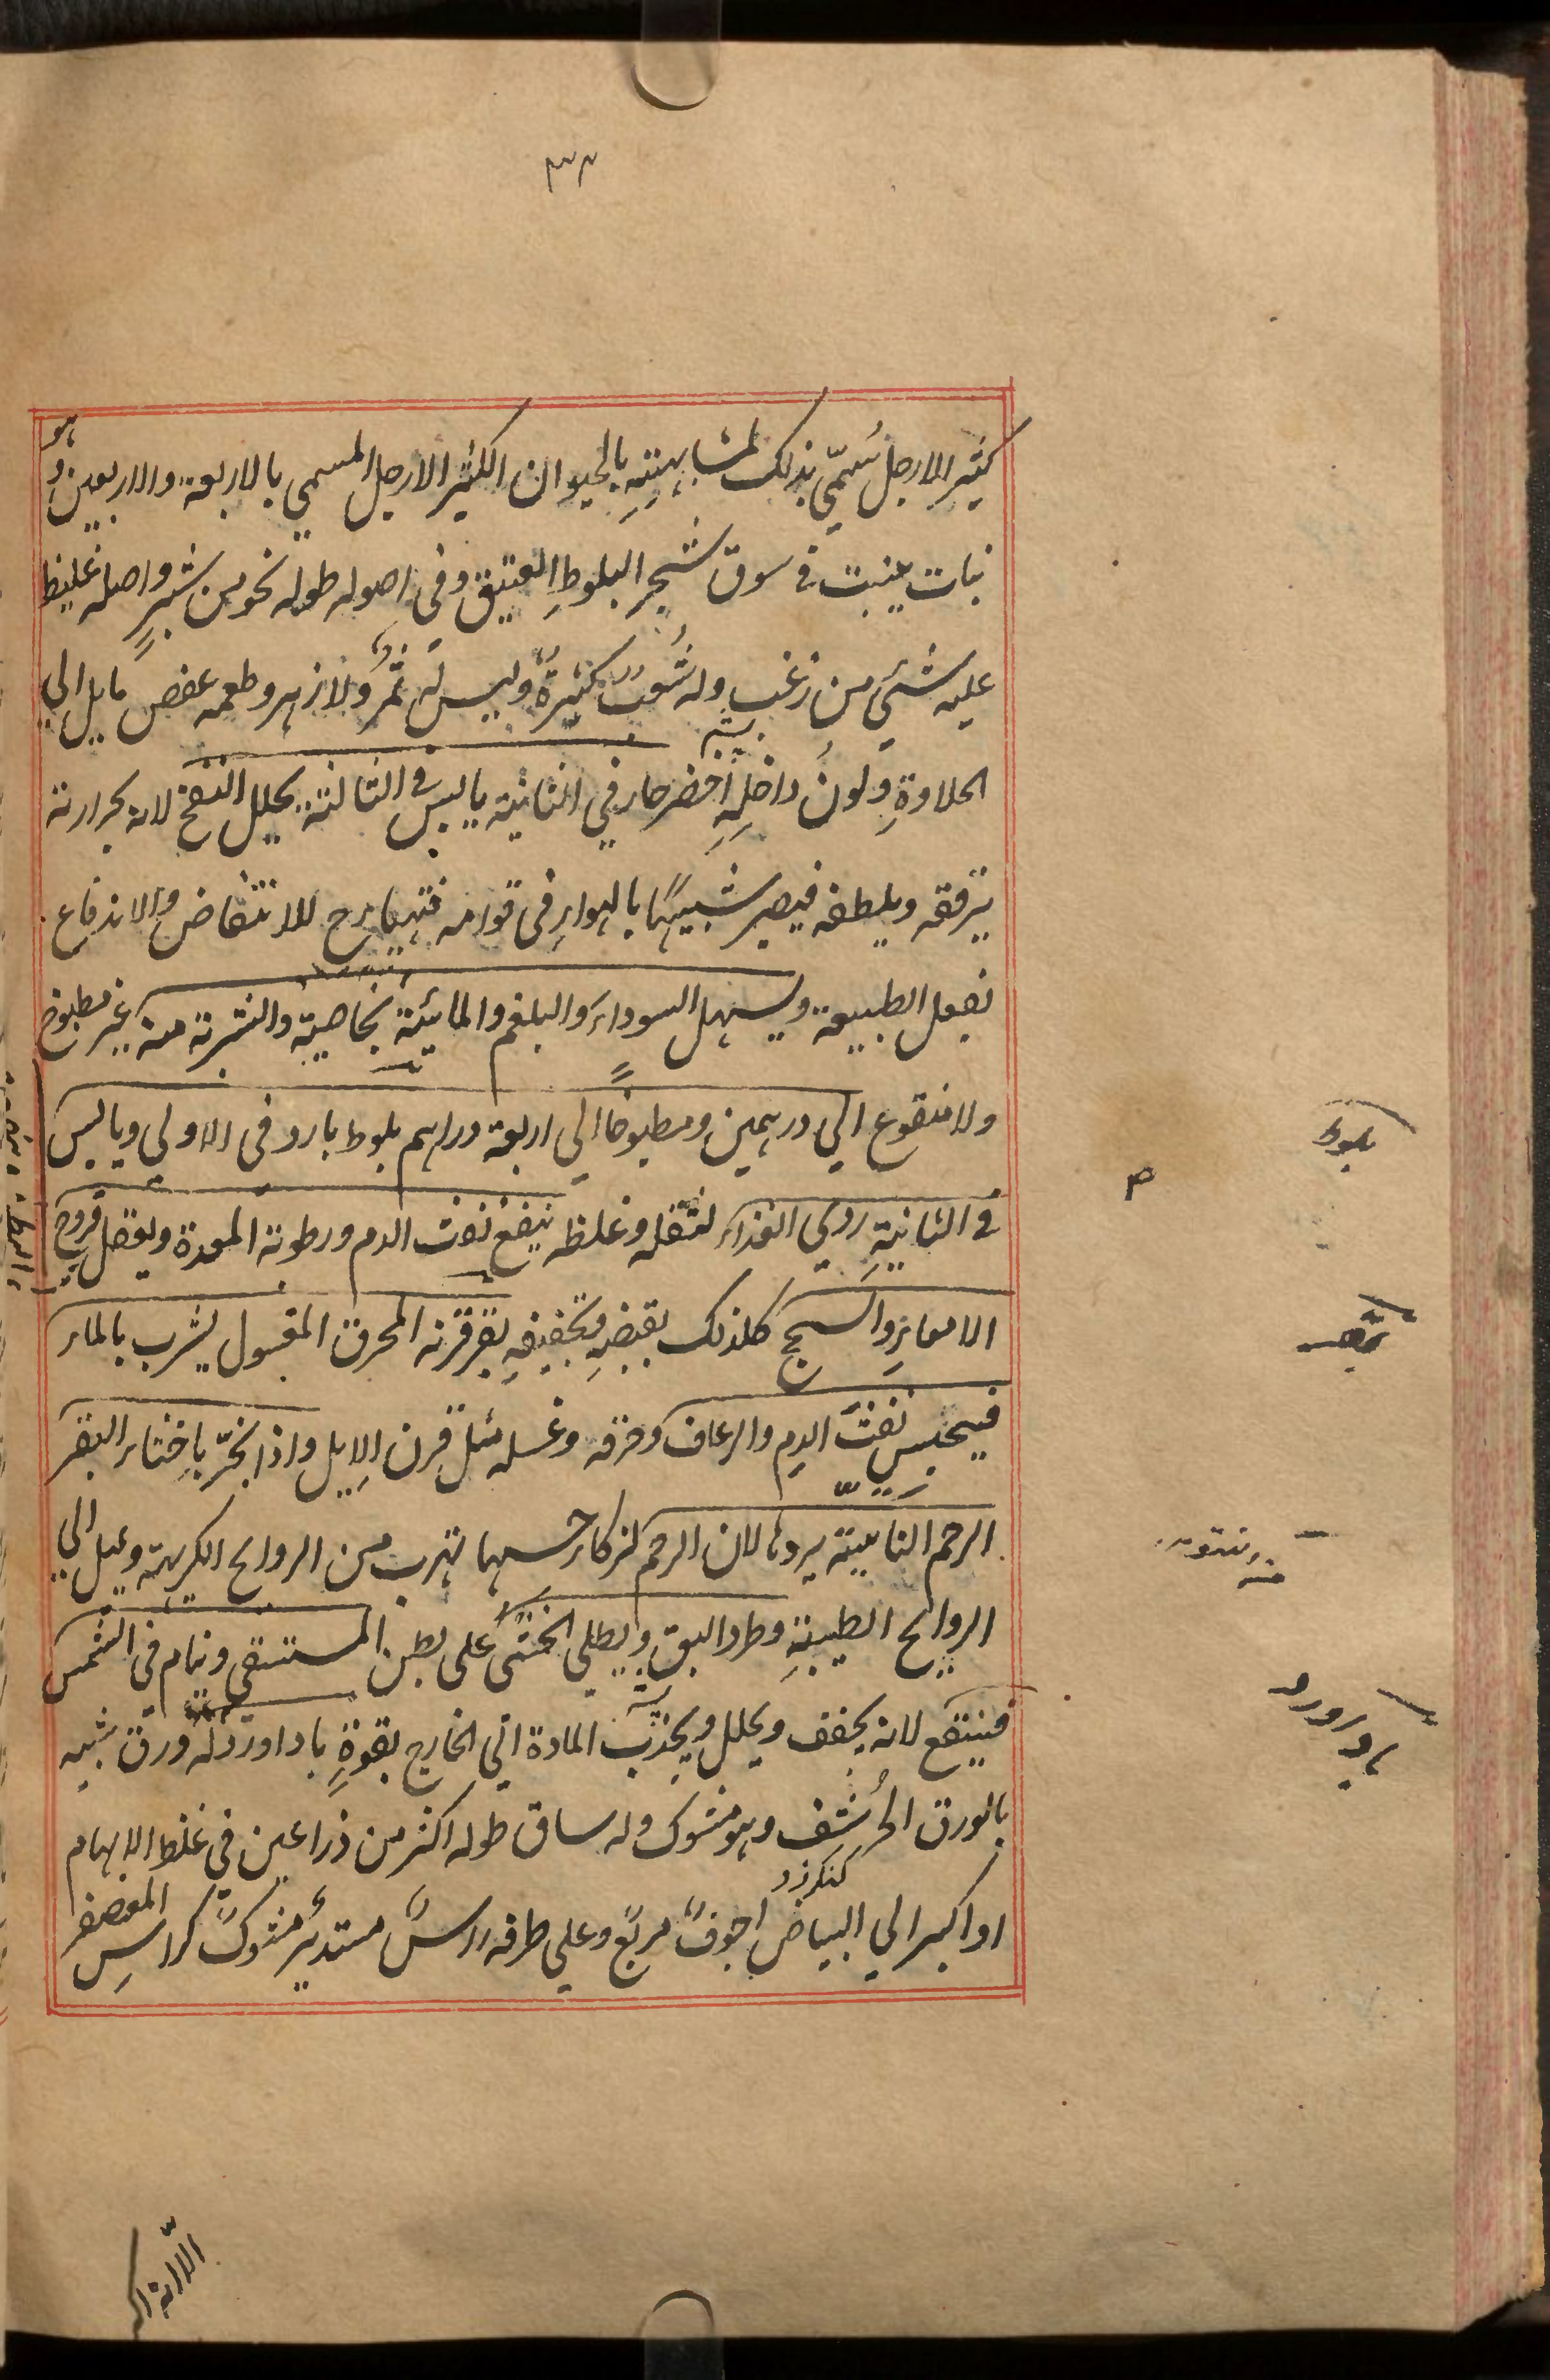 ٣٣
كثير الارجل سُمّي بذلك لمشابهتِهِ بالحيوان الكثير الارجل المسمي بالاربعة والاربعين و هو
نبات ينبت في سوق شجر البلوطِ العتيق وفي اصوله طوله نحو من شبرٍ واصله غليظ
عليه شئي من زغب وله شُعبٌ كثيرةٌ وليس له ثمرٌ ولا زهر وطعمه عفص مايل الي
الحلاوةِ ولونُ داخلِهِ أخضر حار في الثانية يابس في الثالثة يحلل النفخ لانه بحرارته
يرققه ويلطفه فيصير شبيهًا بالهواءِ في قوامه فتهيا رح للانتفاض والاندفاع
بفعل الطبيعة ويسهل السوداء والبلغم والمائية بخاصية والشربة منه غير مطبوخ
ولا منقوع الي درهمين ومطبوخًا الي اربعة دراهم بلوط بارد في الاولي ويابس
في الثانيةِ ردي الغذاء لثقله وغلظه ينفع نفث الدم ورطوبة المعدة وينفع قروح
الامعاءِ والسحج كلذلك بقبضِهِ وتجفيفِهِ بقر قرنه المحرق المغسول يشرب بالماء
فيحبس نفثَ الدم والرعاف وحرقه وغسله مثل قرن الايل واذا بخّر باخثاء البقر
الرحم الناتية يردها لان الرحم لزكاء حسها تهرب من الروايح الكريهة ويميل الي
الروايح الطيبةِ وطرد البق ويطلي الخثي علي بطن المستسقي وينام في الشمس
فينتفع لانه يجفف ويحلل ويجذب المادة الي الخارج بقوةٍ باداورد له ورق شبيه
بالورق الحُرشف وهو مشوك وله ساق طوله اكثر من ذراعين في غلظ الابهام
كنكرزد
او اكبر الي البياض اجوفُ مربعٌ وعلي طرفه راسٌ مستديرٌ مشوكٌ كراسِ المعصفر
بلوط
م
بقر
بادآورد
الّا انه اكبر